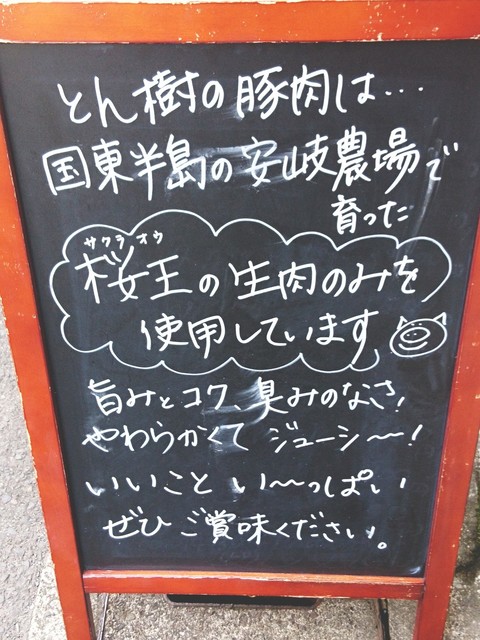 とん樹の豚肉は…
国東半島の安岐農場で
育った
サクラ オウ
桜王の生肉のみを
使用しています
旨みとコク、臭みのなさ!
やわらかくて ジューシ〜!
いいこと い〜っぱい
ぜひ ご賞味ください。